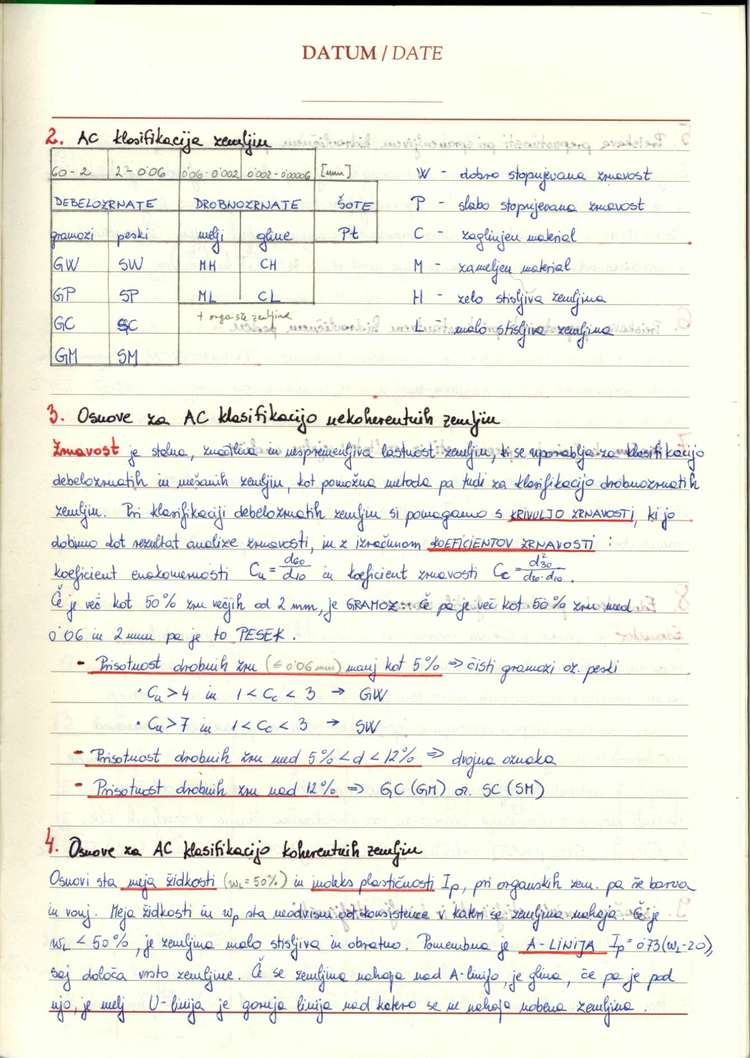 DATUM / DATE
2. AC klasifikacija zemljin
60-2 2-0'06 0'06-0'002 0'002-0'00006 [mm]
DEBELOZRNATE DROBNOZRNATE ŠOTE
gramozi peski melji gline Pt
GW SW MH CH
GP SP ML CL
GC SC + organske zemljine
GM SM
W - dobro stopnjevana zrnavost
P - slabo stopnjevana zrnavost
C - zaglinjen material
M - zameljen material
H - zelo stisljiva zemljina
L - malo stisljiva zemljina
3. Osnove za AC klasifikacijo nekoherentnih zemljin
Zrnavost je stalna, značilna in nespremenljiva lastnost zemljin, ki se uporablja za klasifikacijo
debelozrnatih in mešanih zemljin, kot pomožna metoda pa tudi za klasifikacijo drobnozrnatih
zemljin. Pri klasifikaciji debelozrnatih zemljin si pomagamo s KRIVULJO ZRNAVOSTI, ki jo
dobimo kot rezultat analize zrnavosti, in z izračunom KOEFICIENTOV ZRNAVOSTI :
koeficient enakomernosti Cu = d60/d10 in koeficient zrnavosti Cc = d²30/d60·d10 .
Če je več kot 50% zrn večjih od 2 mm, je GRAMOZ. Če pa je več kot 50% zrn med
0'06 in 2 mm pa je to PESEK.
- Prisotnost drobnih zrn (≤ 0'06 mm) manj kot 5% => čisti gramozi oz. peski
• Cu > 4 in 1 < Cc < 3 → GW
• Cu > 7 in 1 < Cc < 3 → SW
- Prisotnost drobnih zrn med 5% < d < 12% => dvojna oznaka
- Prisotnost drobnih zrn nad 12% => GC (GM) oz. SC (SM)
4. Osnove za AC klasifikacijo koherentnih zemljin
Osnovi sta meja židkosti (wL = 50%) in indeks plastičnosti Ip, pri organskih zem. pa še barva
in vonj. Meja židkosti in wp sta neodvisni od konsistence v kateri se zemljina nahaja. Če je
wL < 50%, je zemljina malo stisljiva in obratno. Pomembna je A-LINIJA Ip = 0'73(wL-20),
saj določa vrsto zemljine. Če se zemljina nahaja nad A-linijo, je glina, če pa je pod
njo, je melj. U-linija je gornja linija nad katero se ne nahaja nobena zemljina.